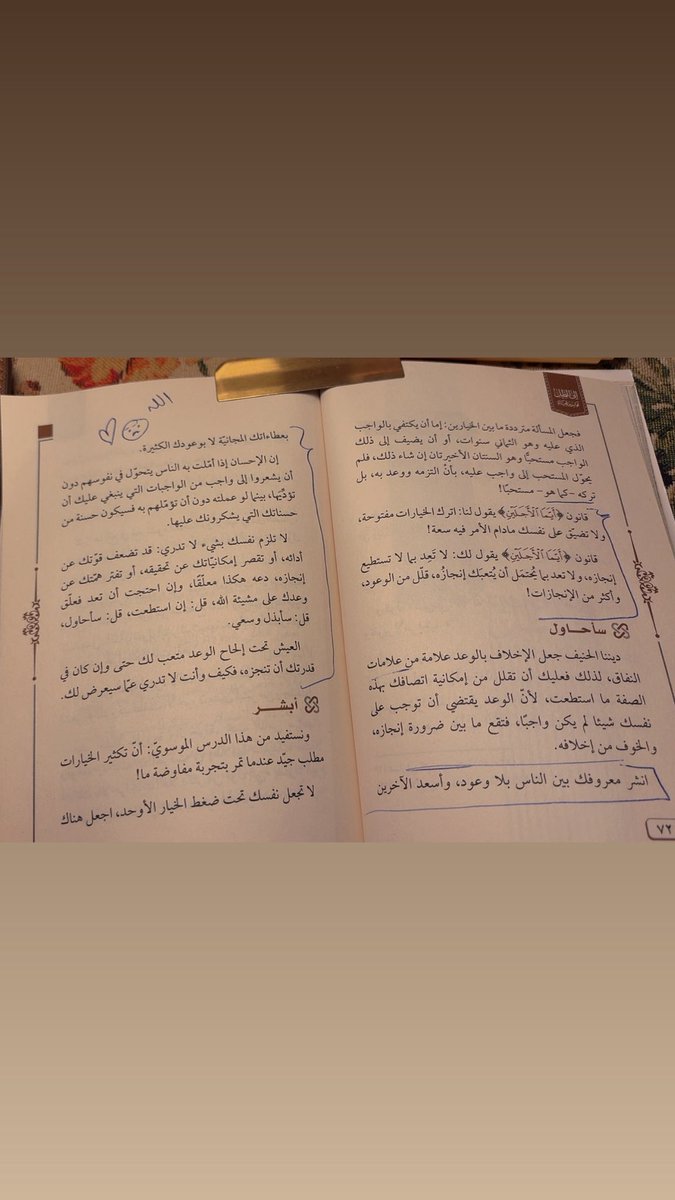 إلى الظل
فجعل المسألة مترددة ما بين الخيارين: إما أن يكتفي بالواجب
الذي عليه وهو الثماني سنوات، أو أن يضيف إلى ذلك
الواجب مستحبًّا وهو السنتان الأخيرتان إن شاء ذلك، فلم
يحوّل المستحب إلى واجب عليه، بأنْ التزمه ووعد به، بل
تركه -كما هو- مستحبًّا!
قانون ﴿أَيَّمَا ٱلْأَجَلَيْنِ﴾ يقول لنا: اترك الخيارات مفتوحة،
ولا تضيّق على نفسك مادام الأمر فيه سعة!
قانون ﴿أَيَّمَا ٱلْأَجَلَيْنِ﴾ يقول لك: لا تَعِد بما لا تستطيع
إنجازه، ولا تعد بما يُحتمَل أن يُتعِبَك إنجازُه، قلّل من الوعود،
وأكثر من الإنجازات!
سأحاول
ديننا الحنيف جعل الإخلاف بالوعد علامة من علامات
النفاق، لذلك فعليك أن تقلل من إمكانية اتصافك بهذه
الصفة ما استطعت، لأنّ الوعد يقتضي أن توجب على
نفسك شيئا لم يكن واجبًا، فتقع ما بين ضرورة إنجازه،
والخوف من إخلافه.
انشر معروفك بين الناس بلا وعود، وأسعد الآخرين
٧٢
الله
بعطاءاتك المجانيّة لا بوعودك الكثيرة.
إن الإحسان إذا أمّلت به الناس يتحوّل في نفوسهم دون
أن يشعروا إلى واجب من الواجبات التي ينبغي عليك أن
تؤدّيَها، بينما لو عملته دون أن تؤمّلهم به فسيكون حسنة من
حسناتك التي يشكرونك عليها.
لا تلزم نفسك بشيء لا تدري: قد تضعف قوّتك عن
أدائه، أو تقصر إمكانيّاتك عن تحقيقه، أو تفتر همّتك عن
إنجازه، دعه هكذا معلّقًا، وإن احتجت أن تعد فعلّق
وعدك على مشيئة الله، قل: إن استطعت، قل: سأحاول،
قل: سأبذل وسعي.
العيش تحت إلحاح الوعد متعب لك حتى وإن كان في
قدرتك أن تنجزه، فكيف وأنت لا تدري عمّا سيعرض لك.
أبشر
ونستفيد من هذا الدرس الموسويّ: أنّ تكثير الخيارات
مطلب جيّد عندما تمر بتجربة مفاوضة ما!
لا تجعل نفسك تحت ضغط الخيار الأوحد، اجعل هناك